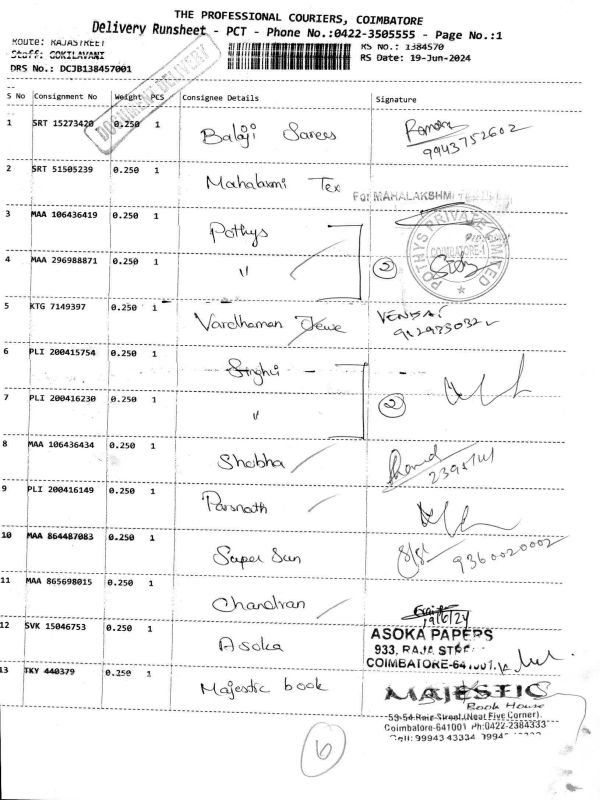 THE PROFESSIONAL COURIERS, COIMBATORE
Delivery Runsheet - PCT - Phone No.:0422-3505555 - Page No.:1
Route: RAJASTREET
Staff: GOKILAVANI
DRS No.: DCJB138457001
RS No.: 1384570
RS Date: 19-Jun-2024
DOCUMENT DELIVERY
S No Consignment No Weight PCS Consignee Details Signature
1 SRT 15273420 0.250 1 Balaji Sarees
9943752602
2 SRT 51505239 0.250 1 Mahalaxmi Tex
For MAHALAKSHMI
3 MAA 106436419 0.250 1 Pothys
POTHYS PRIVATE LIMITED
COIMBATORE-1
4 MAA 296988871 0.250 1 " 2
5 KTG 7149397 0.250 1 Vardhaman Jewe
6 PLI 200415754 0.250 1 Singhi
7 PLI 200416230 0.250 1 " 2
8 MAA 106436434 0.250 1 Shobha
9 PLI 200416149 0.250 1 Parsnath
10 MAA 864487083 0.250 1 Super Sun
9360020002
11 MAA 865698015 0.250 1 Chandran
19/6/24
12 SVK 15046753 0.250 1 Asoka
ASOKA PAPERS
933, RAJA STREET
COIMBATORE-641001.
13 TKY 440379 0.250 1 Majestic book
MAJESTIC
Book House
53-54 Raja Street,(Near Five Corner).
Coimbatore-641001 Ph:0422-2384333
Cell: 99943 43334
6